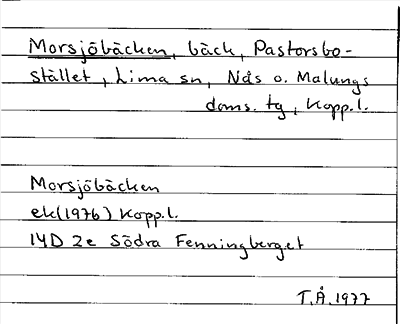 Morsjöbäcken, bäck, Pastorsbo-
stället, Lima sn, Nås o. Malungs
doms. tg, Kopp.l.
Morsjöbäcken
ek(1976) Kopp.l.
14D 2e Södra Fenningberget
T.Å.1977